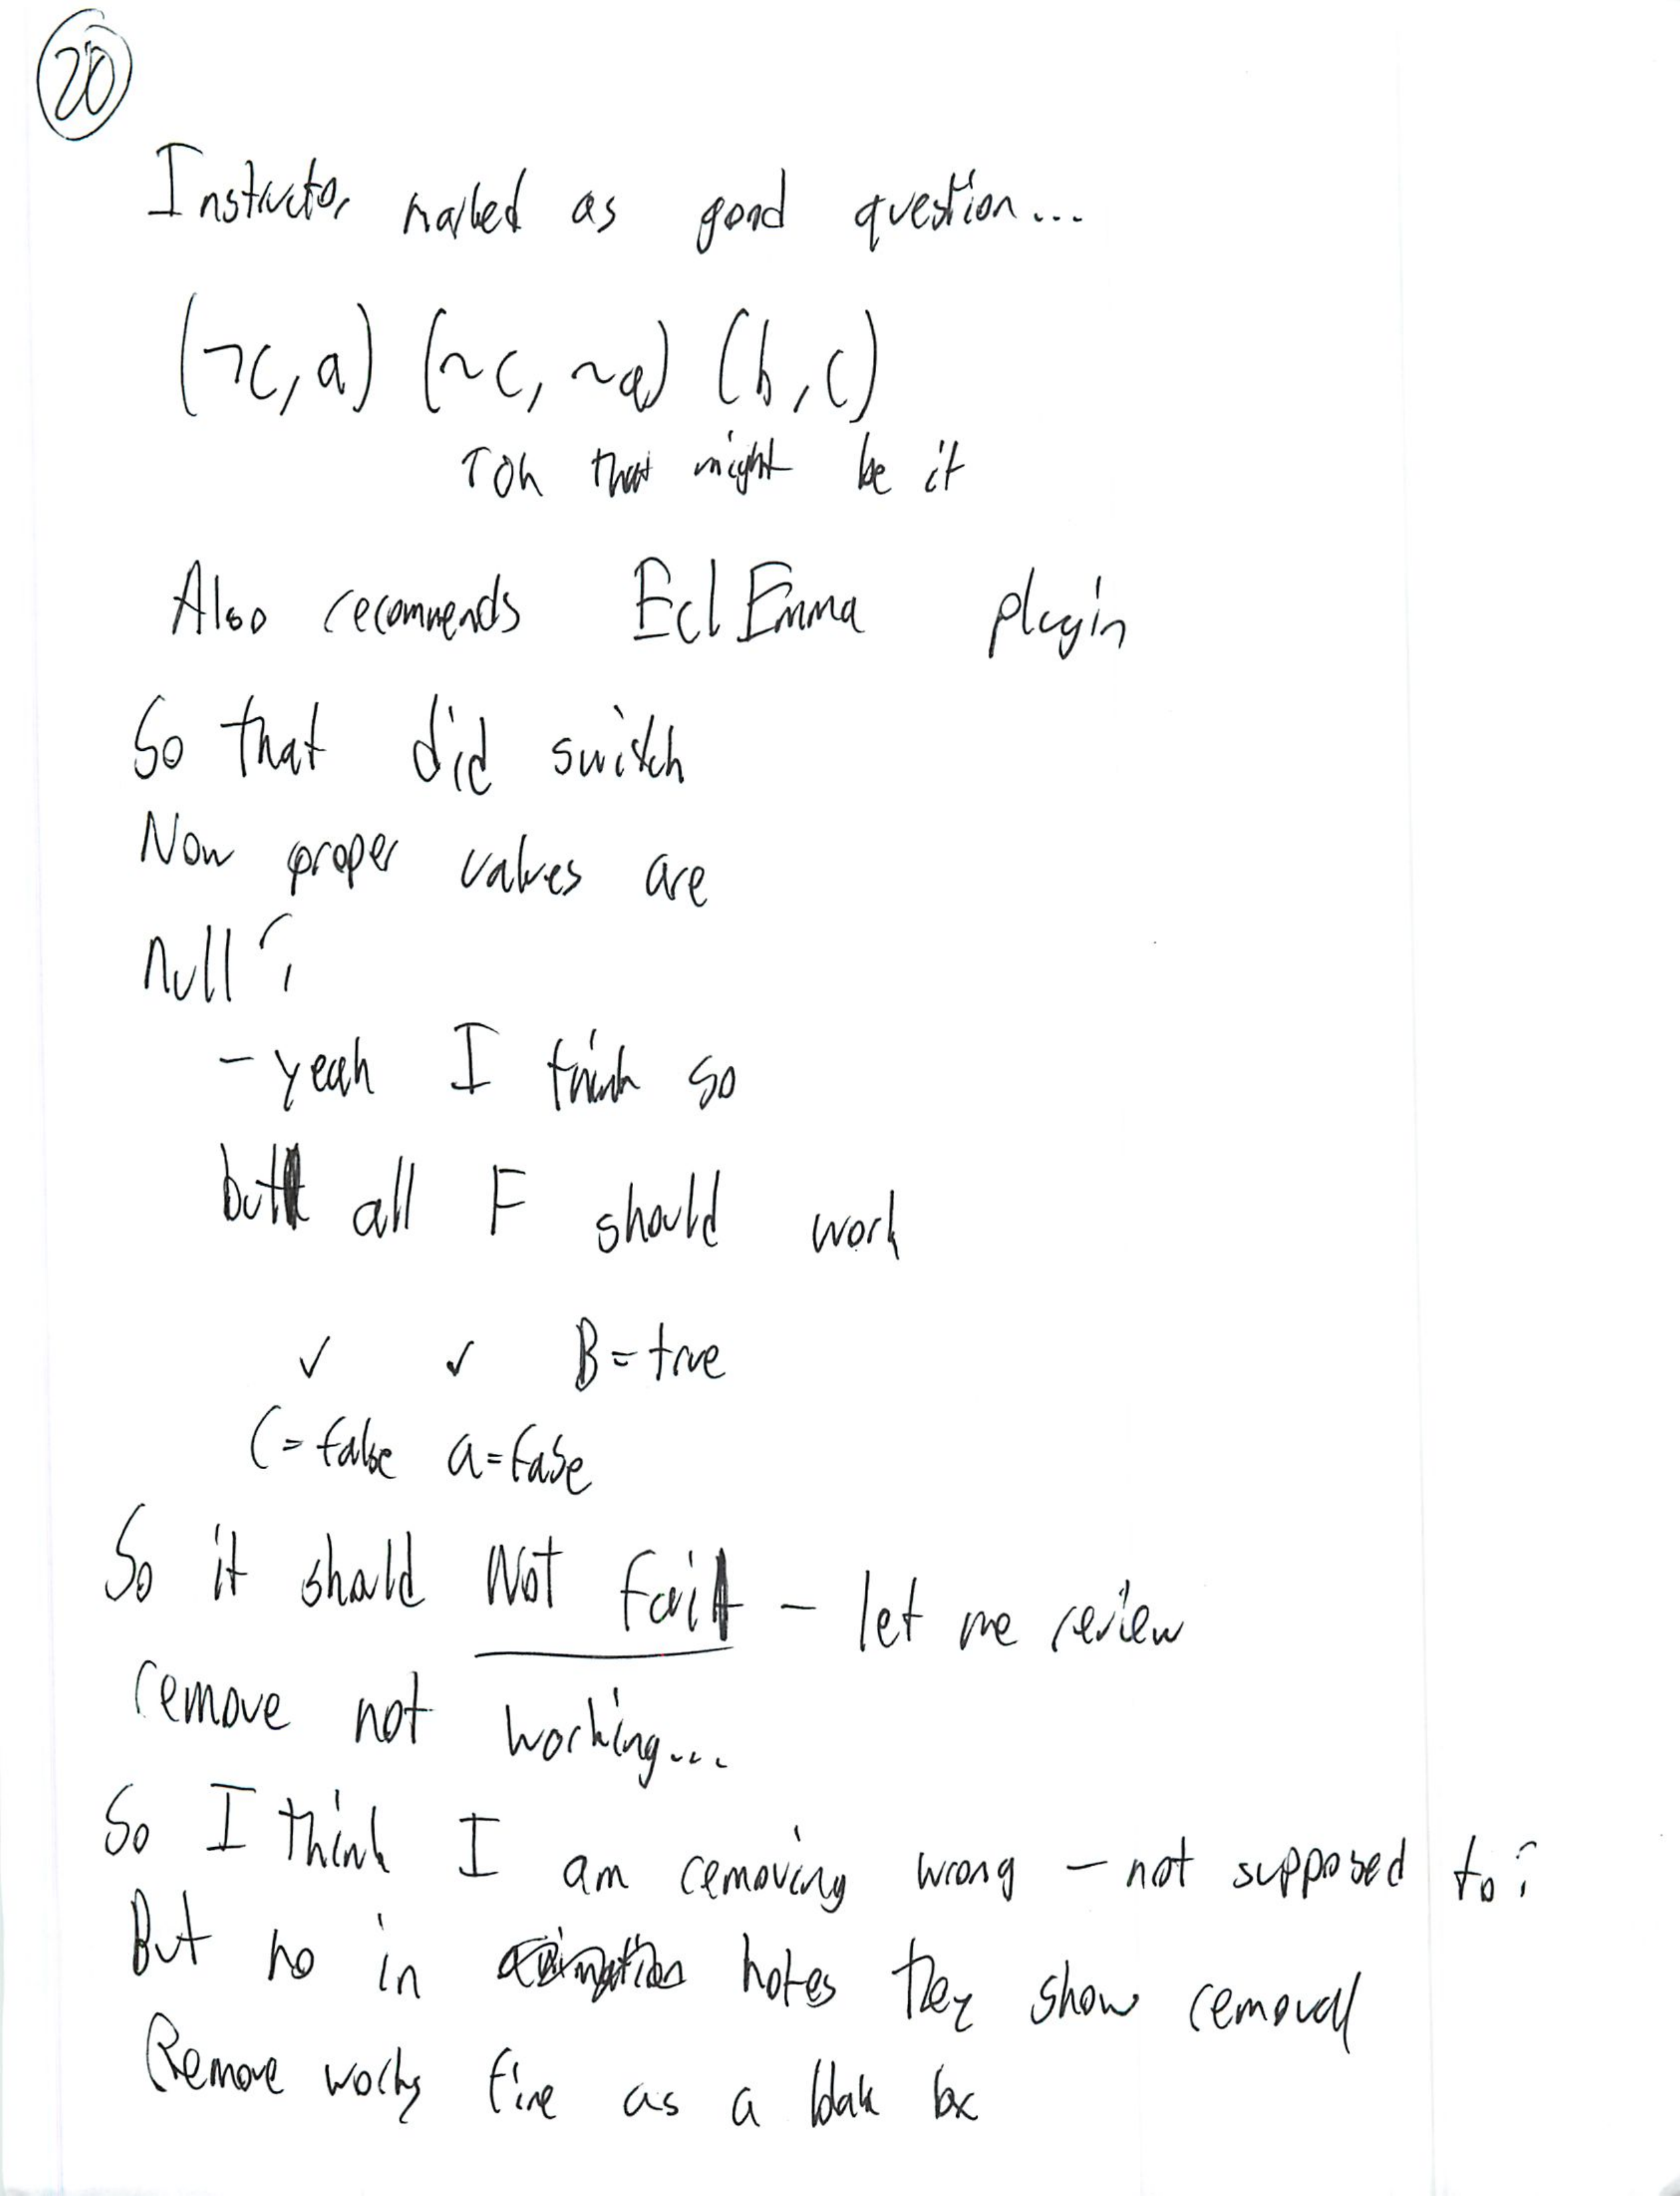 20
Instructor marked as good question...
(¬c, a) (~c, ~a) (b, c)
Toh that might be it
Also recommends EclEmma plugin
So that did switch
Now proper values are
null?
- yeah I think so
but all F should work
✓ ✓ B = true
C = false a = false
So it should Not fail - let me review
remove not working...
So I think I am removing wrong - not supposed to?
But no in notes they show removal
Remove works fine as a blak box